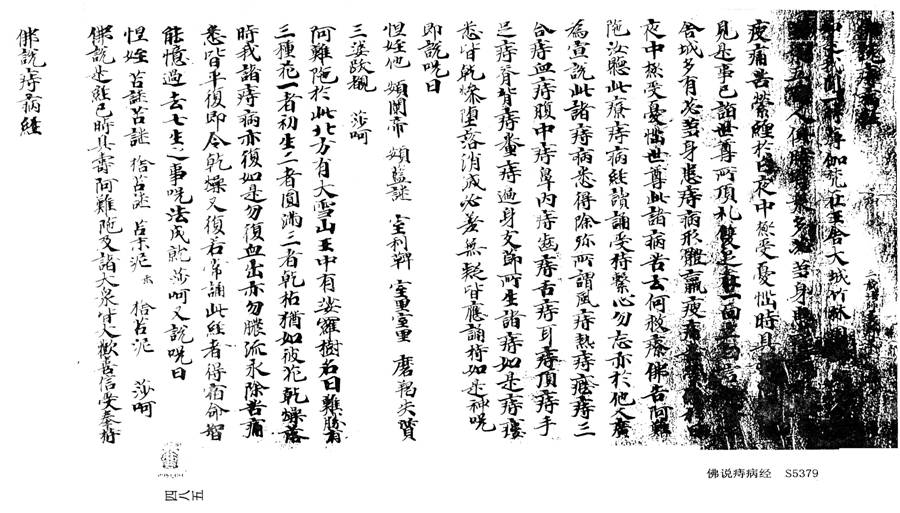 佛說痔病經
如是我聞一時薄伽梵在王舍大城竹林園
五百人俱時有眾多苾芻身患
疲痛苦縈纏於日夜中極受憂惱時具
見是事已詣世尊所頂礼雙足在一面立白言
舍城多有苾芻身患痔病形體羸疲痛苦
夜中極受憂惱世尊此諸病苦云何救療佛告阿難
陁汝聽此療痔病経讀誦受持繫心勿忘亦於他人廣
為宣說此諸痔病悉得除殄所謂風痔熱痔癊痔三
合痔血痔腹中痔鼻內痔齒痔舌痔耳痔頂痔手
足痔脊背痔糞痔遍身支節所生諸痔如是痔瘻
悉皆乾燥墮落消滅必差無疑皆應誦持如是神呪
即說呪曰
怛姪他 頞闌帝 頞藍謎 室利鞞 室里室里 磨羯失質
三婆跋覩 莎呵
阿難陁於此北方有大雪山王中有娑羅樹名曰難勝有
三種花一者初生二者圓滿三者乾枯猶如彼花乾燥落
時我諸痔病亦復如是勿復血出亦勿膿流永除苦痛
悉皆平復即令乾燥又復若常誦此経者得宿命智
能憶過去七生之事呪法成就莎呵又說呪曰
怛姪 苫謎苫謎 捨苫謎 苫末泥 捨苫泥 莎呵
佛說是経已時具壽阿難陁及諸大眾皆大歡喜信受奉行
佛說痔病經
佛说痔病经 S5379
四八五